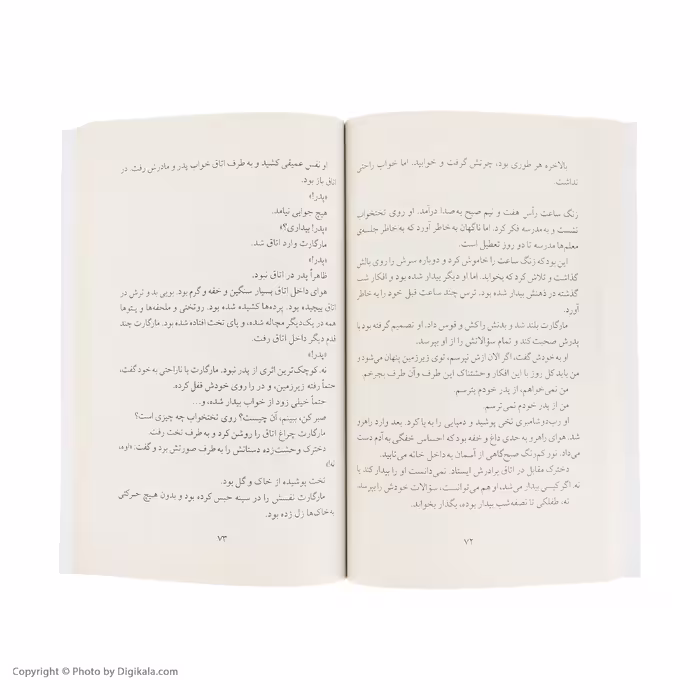 بالاخره هر طوری بود، چرتش گرفت و خوابید. اما خواب راحتی
نداشت.
زنگ ساعت رأس هفت و نیم صبح به‌صدا درآمد. او روی تختخواب
نشست و به مدرسه فکر کرد. اما ناگهان به خاطر آورد که به خاطر جلسه‌ی
معلم‌ها مدرسه تا دو روز تعطیل است.
این بود که زنگ ساعت را خاموش کرد و دوباره سرش را روی بالش
گذاشت و تلاش کرد که بخوابد. اما او دیگر بیدار شده بود و افکار شب
گذشته در ذهنش بیدار شده بود. ترس چند ساعت قبل خود را به خاطر
آورد.
مارگارت بلند شد و بدنش را کش و قوس داد. او تصمیم گرفته بود با
پدرش صحبت کند و تمام سؤالاتش را از او بپرسد.
او به خودش گفت، اگر الان ازش نپرسم، توی زیرزمین پنهان می‌شود و
من باید کل روز با این افکار وحشتناک این طرف و آن طرف بچرخم.
من نمی‌خواهم، از پدر خودم بترسم.
من از پدر خودم نمی‌ترسم.
او رب‌دوشامبری نخی پوشید و دمپایی را به پا کرد. بعد وارد راهرو
شد. هوای راهرو به حدی داغ و خفه بود که احساس خفگی به آدم دست
می‌داد. نور کم‌رنگ صبح‌گاهی از آسمان به داخل خانه می‌تابید.
دخترک مقابل در اتاق برادرش ایستاد. نمی‌دانست او را بیدار کند یا
نه. اگر کیسی بیدار می‌شد، او هم می‌توانست، سؤالات خودش را بپرسد.
نه، طفلکی تا نصفه‌شب بیدار بوده، بگذار بخواند.
۷۲
او نفس عمیقی کشید و به طرف اتاق خواب پدر و مادرش رفت. در
اتاق باز بود.
«پدر!»
هیچ جوابی نیامد.
«پدر! بیداری؟»
مارگارت وارد اتاق شد.
«پدر!»
ظاهراً پدر در اتاق نبود.
هوای داخل اتاق بسیار سنگین و خفه و گرم بود. بویی بد و ترش در
اتاق پیچیده بود. پرده‌ها کشیده شده بود. روتختی و ملحفه‌ها و پتوها
همه در یک‌دیگر مچاله شده، و پای تخت افتاده شده بود. مارگارت چند
قدم دیگر داخل اتاق رفت.
«پدر!»
نه. کوچک‌ترین اثری از پدر نبود. مارگارت با ناراحتی به خود گفت،
حتماً رفته زیرزمین، و در را روی خودش قفل کرده.
حتماً خیلی زود از خواب بیدار شده، و...
صبر کن، ببینم، آن چیست؟ روی تختخواب چه چیزی است؟
مارگارت چراغ اتاق را روشن کرد و به طرف تخت رفت.
دخترک وحشت‌زده دستانش را به طرف صورتش برد و گفت: «اوه،
نه!»
تخت پوشیده از خاک و گل بود.
مارگارت نفسش را در سینه حبس کرده بود و بدون هیچ حرکتی
به خاک‌ها زل زده بود.
۷۳
Copyright © Photo by Digikala.com